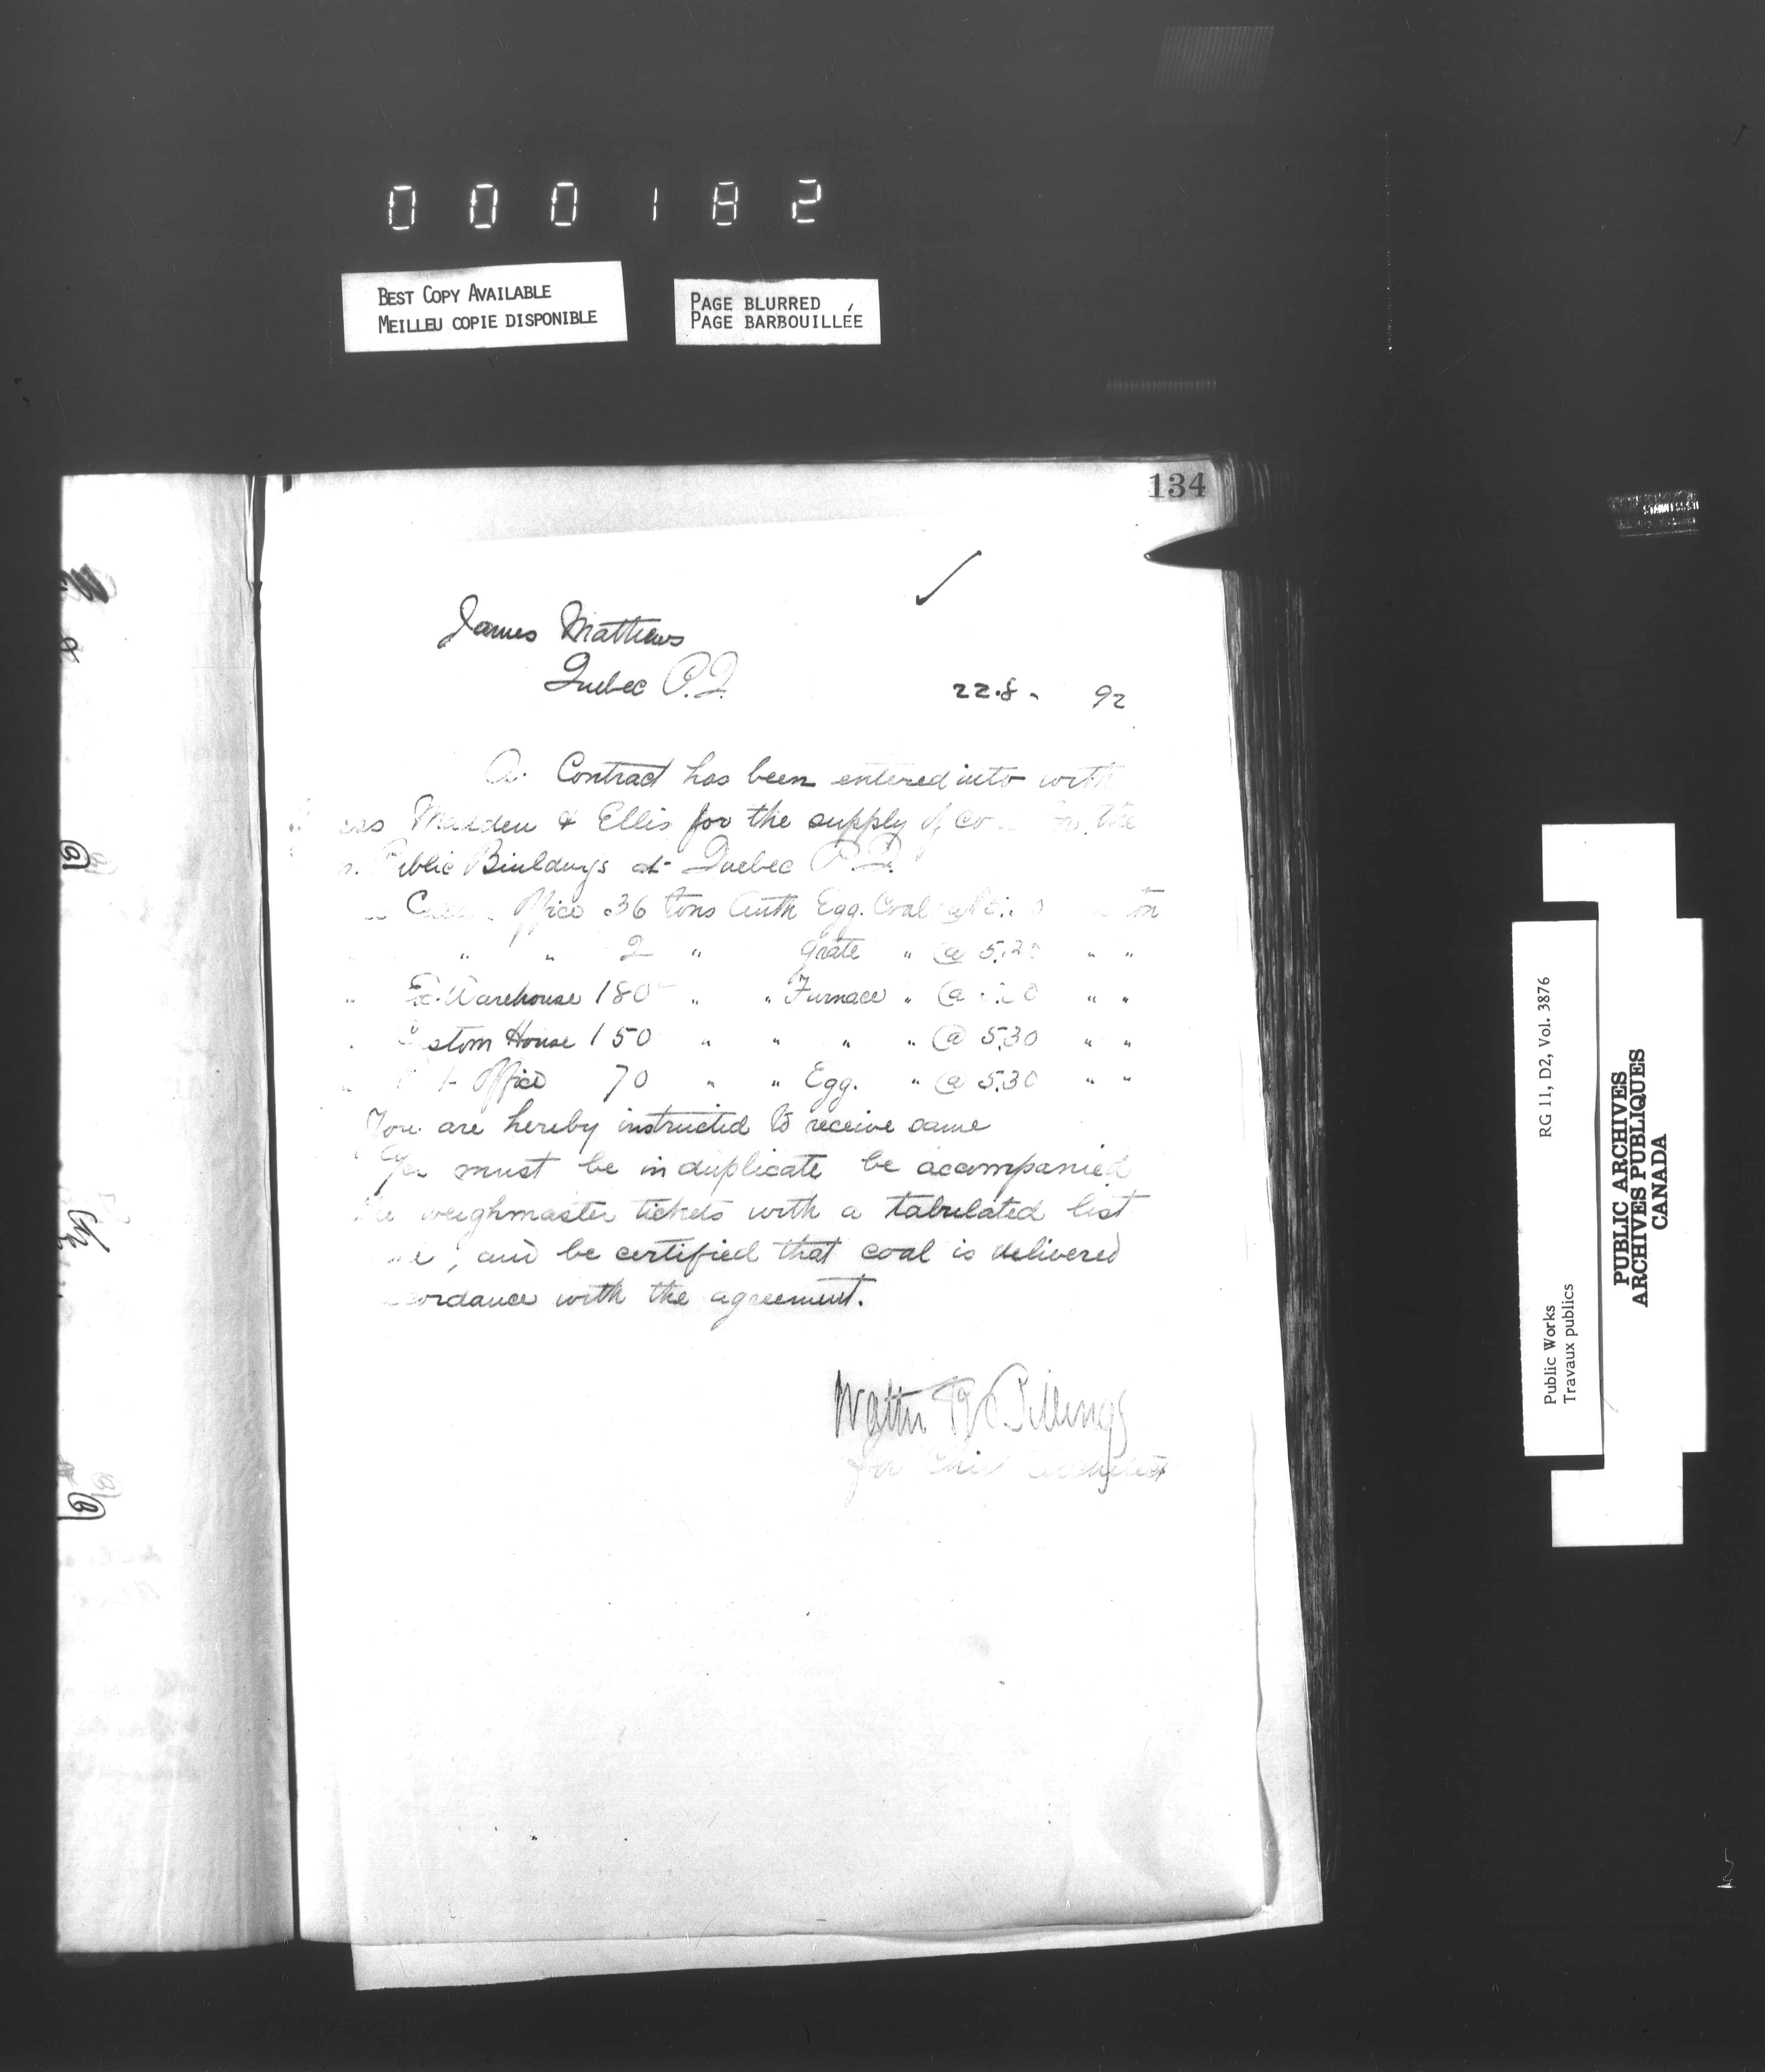 000182
BEST COPY AVAILABLE
MEILLEU COPIE DISPONIBLE
PAGE BLURRED
PAGE BARBOUILLÉE
134
James Matthews
Quebec P.Q.
22.8- 92
A. Contract has been entered into with
& Ellis for the supply of the
Public Buildings at Quebec P.Q.
Office 36 tons Anth Egg. Coal ton
" " 2 " grate " @ 5.30 " "
" Ex. Warehouse 180 " " Furnace " @ " "
stom House 150 " " " " @ 5.30 " "
" Office 70 " " Egg. " @ 5.30 " "
You are hereby instructed to receive same
must be in duplicate be acompanied
weighmaster tickets with a tabulated list
, and be certified that coal is delivered
ordance with the agreement.
Walter R Billings
for Chief Architect
RG 11, D2, Vol. 3876
Public Works
Travaux publics
PUBLIC ARCHIVES
ARCHIVES PUBLIQUES
CANADA